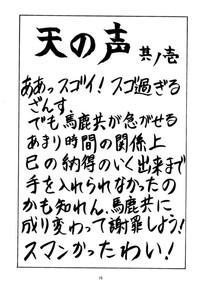 天の声 其ノ壱
ああっスゴイ！スゴ過ぎる
ざんす。
でも馬鹿共が急がせる
あまり時間の関係上
己の納得のいく出来まで
手を入れられなかったの
かも知れん、馬鹿共に
成り変わって謝罪しよう！
スマンかったわい！